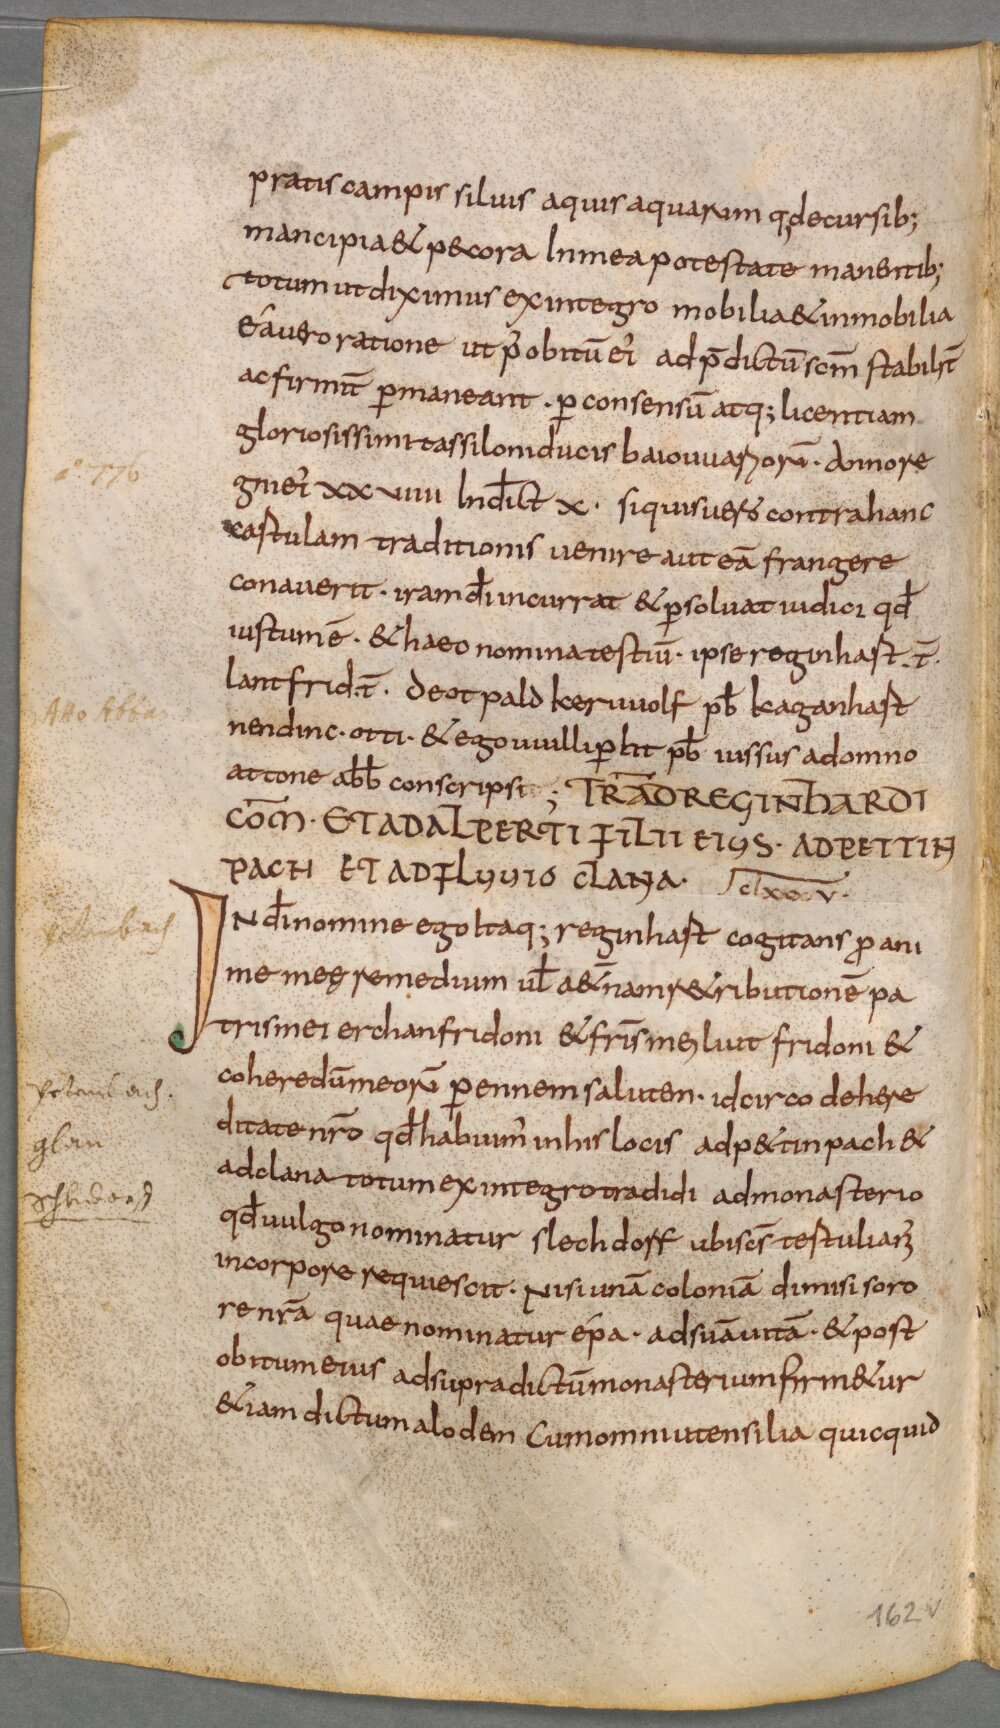 pratis campis siluis aquis aquarum q; decursib;
mancipia & p&cora In mea potestate manentib;
totum ut diximus ex integro mobilia & inmobilia
a°. 776
ea uero ratione ut p̄ obitū ei' ad p̄dictū scm̄ stabilit̄
ac firmit̄ p̱maneant · p̱ consensū atq; licentiam
gloriosissimi tassiloni ducis baiouuariorū · anno re
gni ei' xx viiii Indict̄ x · si quis uero contra hanc
cartulam traditionis uenire aut eā frangere
conauerit · iram dī incurrat & p̱soluat iudici qđ
iustum ē · & haec nomina testiū · ipse reginhart · t̄ ·
Atto Abbas
lantfrid · t̄ · deotpald keruuolf pƀ kaganhart
nendinc · otti · & ego uuillip̱ht pƀ iussus a domno
attone abƀ conscripsi ; TRAD̄ REGINHARDI
COM̄ · ET ADALPERTI FILII EIUS · AD PETTIN
PACH ET AD FLUUIO CLANA · clxxv ·
Petenbach
IN dī nomine ego Itaq; reginhart cogitans p̱ ani
me meę remedium ut̄ aet̄nam r&ributionē pa
tris mei erchanfridoni & fris̄ mei luitfridoni &
Petenbach.
coheredūm eorū p̱ennem saluten · idcirco de here
glan
ditate nr̄o qđ habuim' in his locis ad p&tinpach &
Schledorf
ad clana totum ex integro tradidi ad monasterio
qđ uulgo nominatur slechdorf ubi scs̄ testuliani
in corpore requiescit · Nisi unā coloniā dimisi soro
re nr̄a quae nominatur épa · ad suā uitā · & post
obitum eius ad supra dictū monasterium firm&ur
& iam dictum alodem Cum omni utensilia quicquid
162v